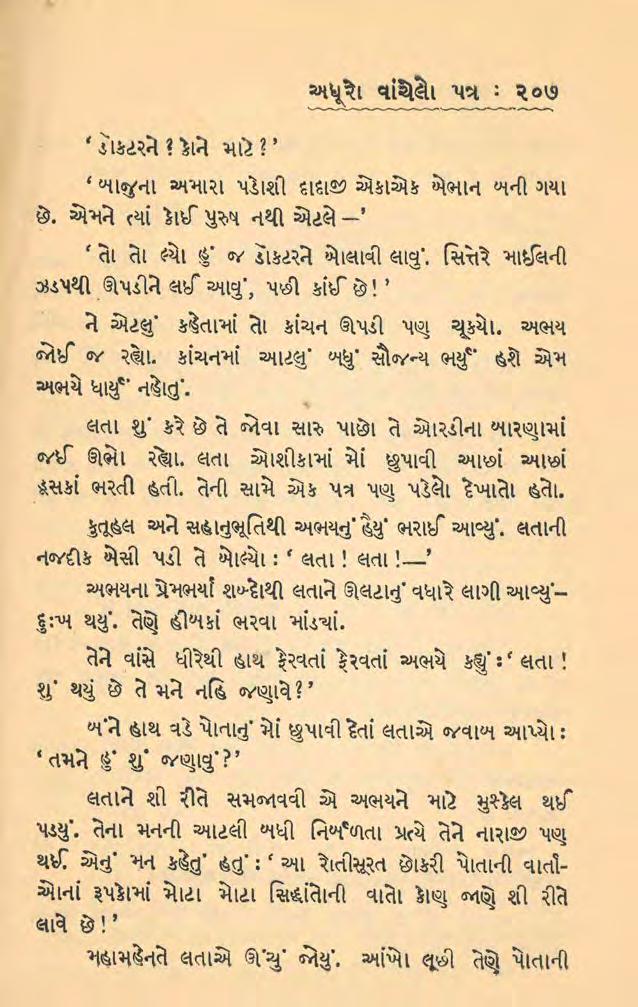 અધૂરો વાંચેલો પત્ર : ૨૦૭
‘ ડૉક્ટરને ? કોને માટે ? ’
‘ બાજુના અમારા પડોશી દાદાજી એકાએક બેભાન બની ગયા
છે. એમને ત્યાં કોઈ પુરુષ નથી એટલે —’
‘ તો તો લ્યો હું જ ડૉક્ટરને બોલાવી લાવું. સિત્તેર માઈલની
ઝડપથી ઊપડીને લઈ આવું, પછી કાંઈ છે! ’
ને એટલું કહેતામાં તો કાંચન ઊપડી પણ ચૂક્યો. અભય
જોઈ જ રહ્યો. કાંચનમાં આટલું બધું સૌજન્ય ભર્યું હશે એમ
અભયે ધાર્યું નહોતું.
લતા શું કરે છે તે જોવા સારુ પાછો તે ઓરડીના બારણામાં
જઈ ઊભો રહ્યો. લતા ઓશીકામાં મોં છુપાવી આછાં આછાં
ડૂસકાં ભરતી હતી. તેની સામે એક પત્ર પણ પડેલો દેખાતો હતો.
કુતૂહલ અને સહાનુભૂતિથી અભયનું હૈયું ભરાઈ આવ્યું. લતાની
નજદીક બેસી પડી તે બોલ્યો : ‘ લતા ! લતા !—’
અભયના પ્રેમભર્યા શબ્દોથી લતાને ઊલટાનું વધારે લાગી આવ્યું–
દુઃખ થયું. તેણે હીબકાં ભરવા માંડ્યાં.
તેને વાંસે ધીરેથી હાથ ફેરવતાં ફેરવતાં અભયે કહ્યું : ‘ લતા !
શું થયું છે તે મને નહિ જણાવે ? ’
બંને હાથ વડે પોતાનું મોં છુપાવી દેતાં લતાએ જવાબ આપ્યો :
‘ તમને હું શું જણાવું ? ’
લતાને શી રીતે સમજાવવી એ અભયને માટે મુશ્કેલ થઈ
પડ્યું. તેના મનની આટલી બધી નિર્બળતા પ્રત્યે તેને નારાજી પણ
થઈ. એનું મન કહેતું હતું : ‘ આ રોતીસૂરત છોકરી પોતાની વાર્તા-
ઓનાં રૂપકોમાં મોટા મોટા સિદ્ધાંતોની વાતો કોણ જાણે શી રીતે
લાવે છે ! ’
મહામહેનતે લતાએ ઊંચું જોયું. આંખો લૂછી તેણે પોતાની